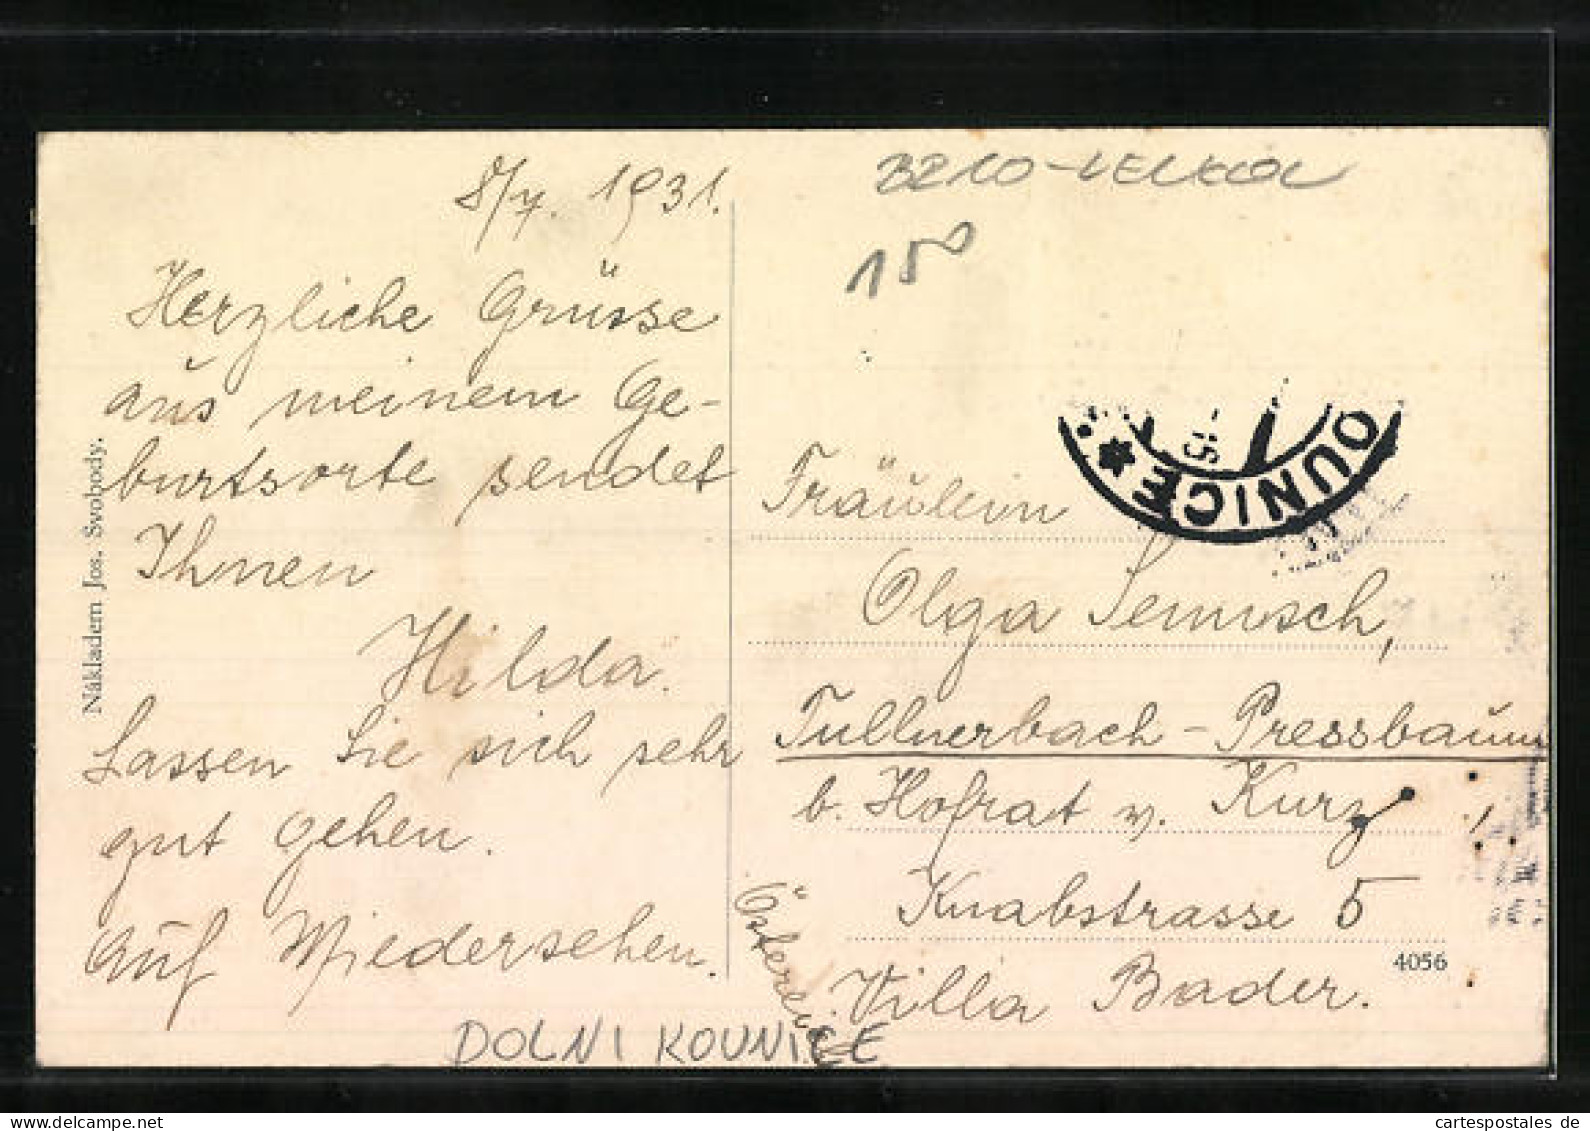 8/7. 1931.
Herzliche Grüsse
aus meinem Ge-
burtsorte sendet
Ihnen
Hilda.
Lassen Sie sich sehr
gut gehen.
Auf Wiedersehen.
Nákladem Jos. Svobody.
150
OUNICE
Fräulein
Olga
Tullnerbach - Pressbaum
b. Hofrat v. Kurz
Knabstrasse 5
Villa Bader.
Österreich
4056
DOLNI KOUNICE
cartespostales de